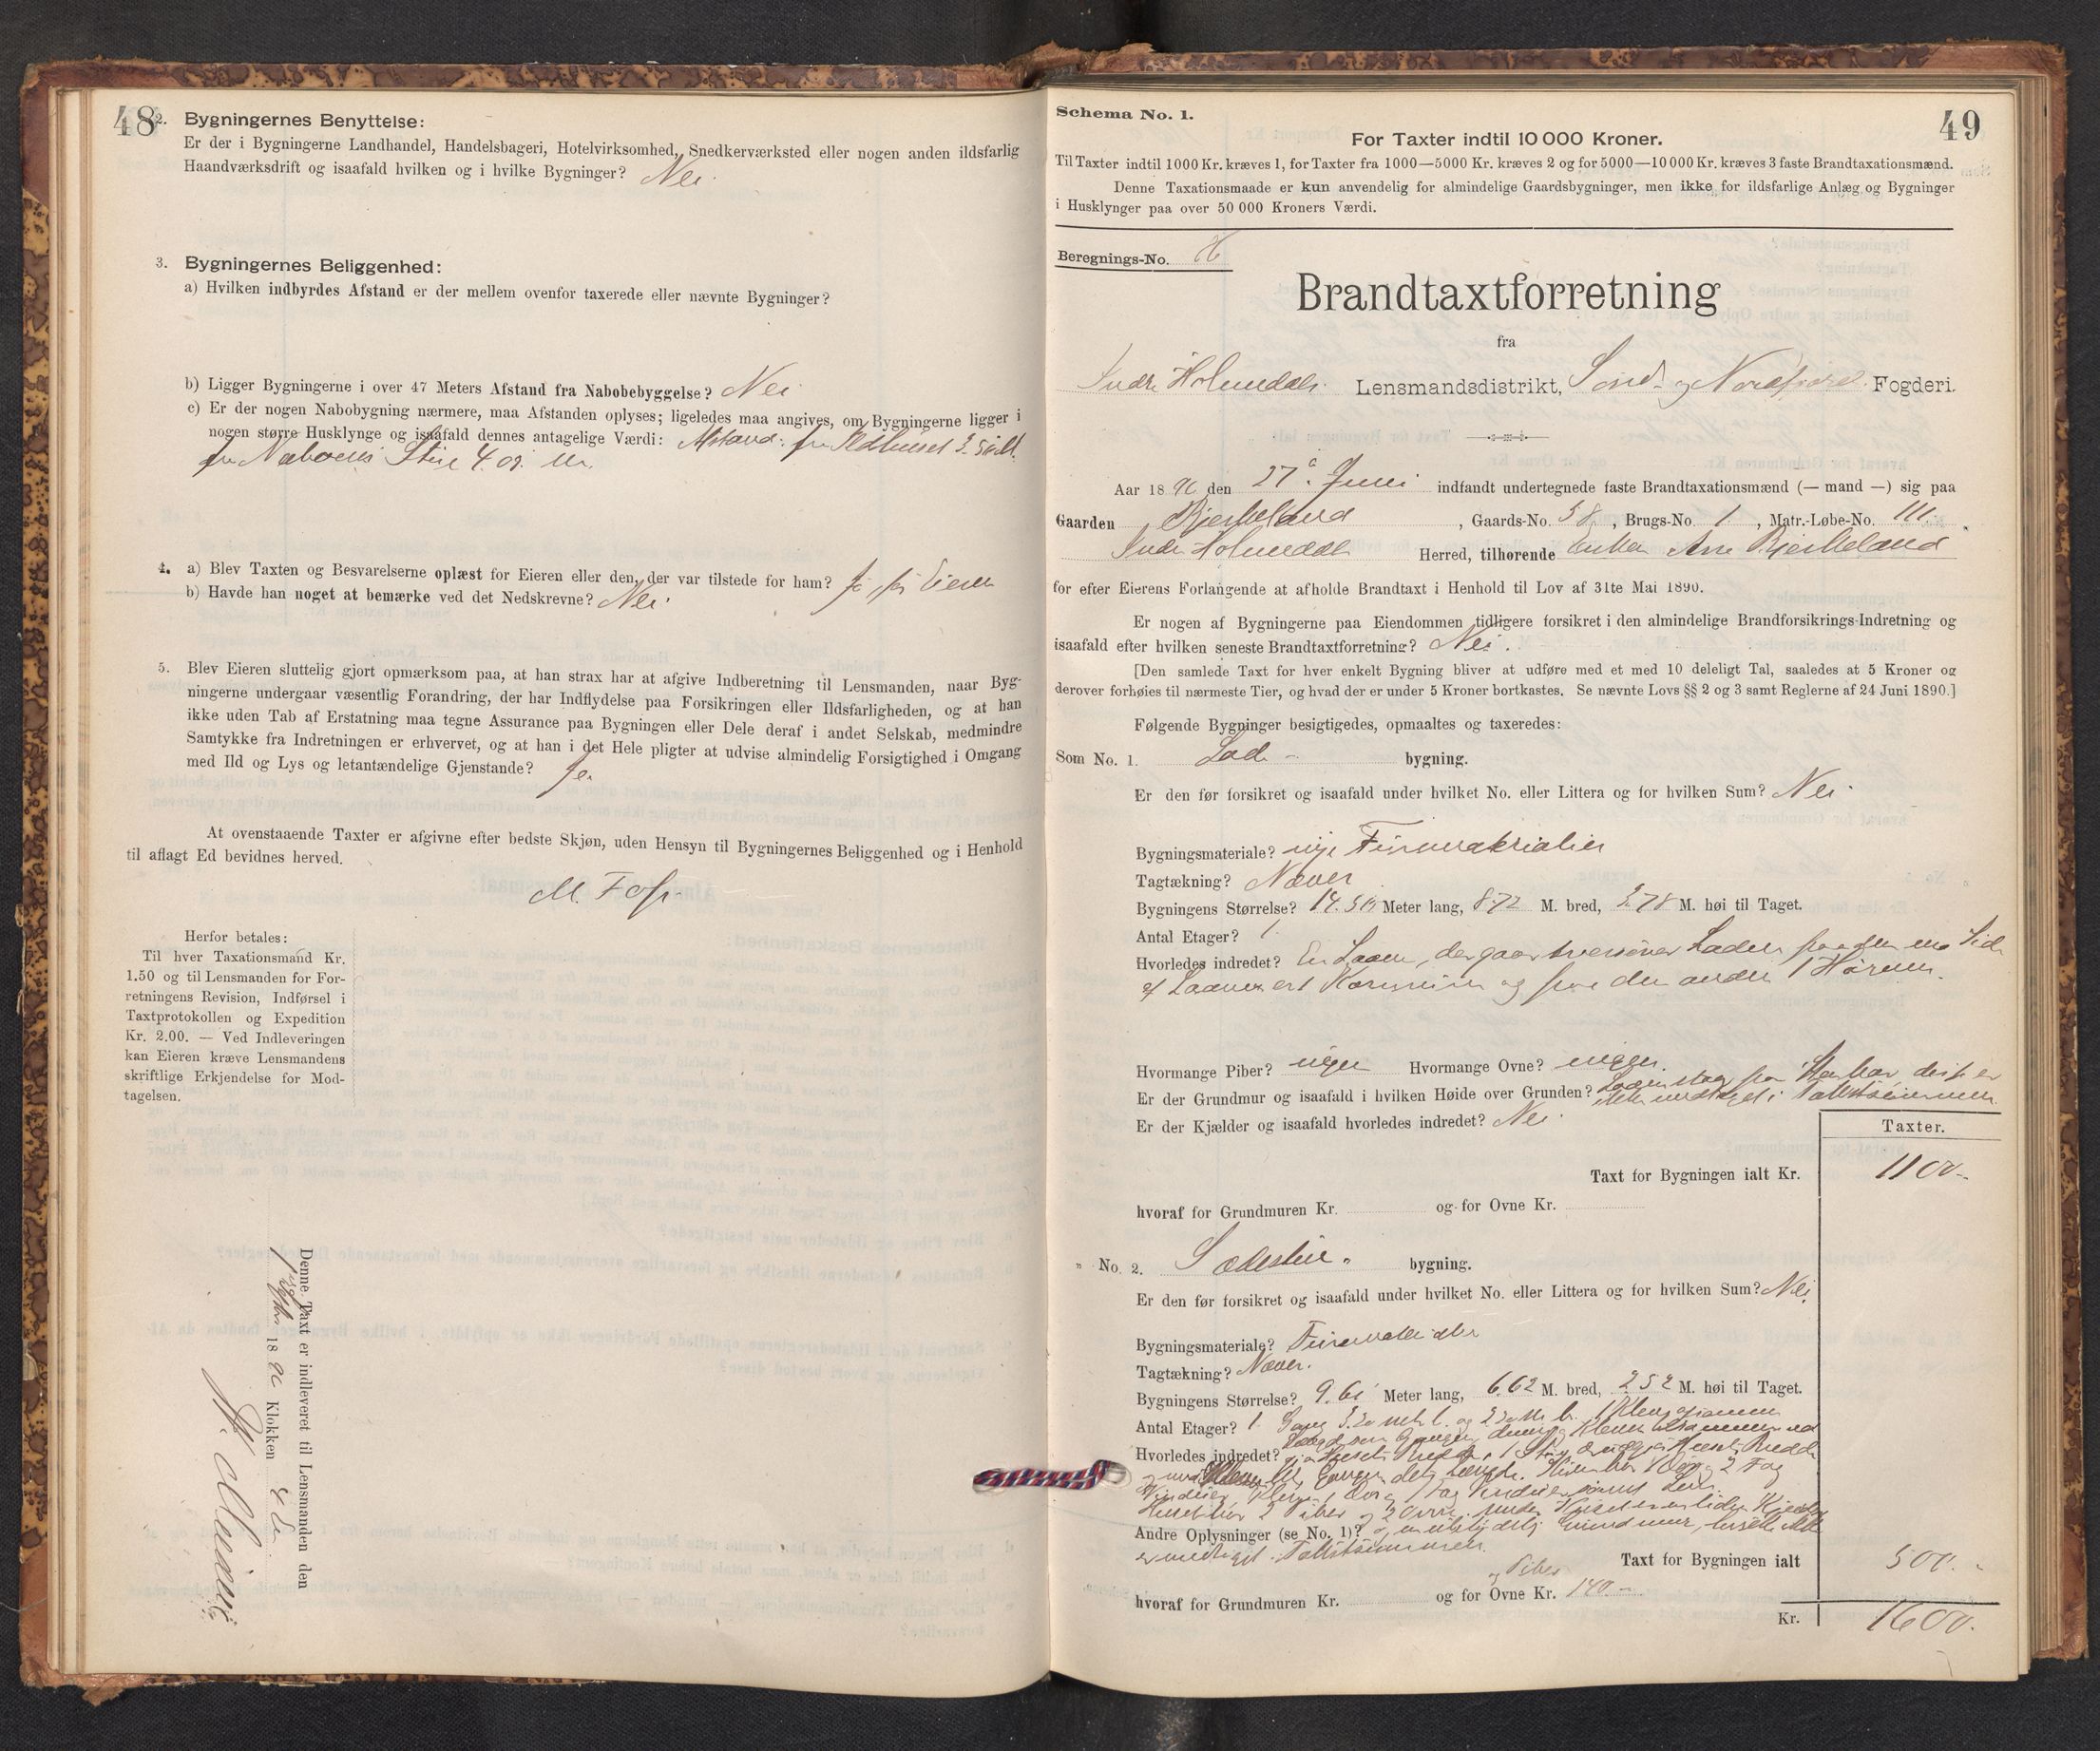 48
2. Bygningernes Benyttelse:
Er der i Bygningerne Landhandel, Handelsbageri, Hotelvirksomhed, Snedkerværksted eller nogen anden ildsfarlig
Haandværksdrift og isaafald hvilken og i hvilke Bygninger? Nei
3. Bygningernes Beliggenhed:
a) Hvilken indbyrdes Afstand er der mellem ovenfor taxerede eller nævnte Bygninger?
b) Ligger Bygningerne i over 47 Meters Afstand fra Nabobebyggelse? Nei
c) Er der nogen Nabobygning nærmere, maa Afstanden oplyses; ligeledes maa angives, om Bygningerne ligger i
nogen større Husklynge og isaafald dennes antagelige Værdi: Afstand fra Ildhuset
fra Naboens
4. a) Blev Taxten og Besvarelserne oplæst for Eieren eller den, der var tilstede for ham? Ja, for Eieren
b) Havde han noget at bemærke ved det Nedskrevne? Nei.
5. Blev Eieren sluttelig gjort opmærksom paa, at han strax har at afgive Indberetning til Lensmanden, naar Byg-
ningerne undergaar væsentlig Forandring, der har Indflydelse paa Forsikringen eller Ildsfarligheden, og at han
ikke uden Tab af Erstatning maa tegne Assurance paa Bygningen eller Dele deraf i andet Selskab, medmindre
Samtykke fra Indretningen er erhvervet, og at han i det Hele pligter at udvise almindelig Forsigtighed i Omgang
med Ild og Lys og letantændelige Gjenstande? Ja
At ovenstaaende Taxter er afgivne efter bedste Skjøn, uden Hensyn til Bygningernes Beliggenhed og i Henhold
til aflagt Ed bevidnes herved.
M. Foss
Herfor betales:
Til hver Taxationsmand Kr.
1.50 og til Lensmanden for For-
retningens Revision, Indførsel i
Taxtprotokollen og Expedition
Kr. 2.00. — Ved Indleveringen
kan Eieren kræve Lensmandens
skriftlige Erkjendelse for Mod-
tagelsen.
Denne Taxt er indleveret til Lensmanden den
1 Klokken
18
49
Schema No. 1.
For Taxter indtil 10 000 Kroner.
Til Taxter indtil 1000 Kr. kræves 1, for Taxter fra 1000—5000 Kr. kræves 2 og for 5000—10 000 Kr. kræves 3 faste Brandtaxationsmænd.
Denne Taxationsmaade er kun anvendelig for almindelige Gaardsbygninger, men ikke for ildsfarlige Anlæg og Bygninger
i Husklynger paa over 50 000 Kroners Værdi.
Beregnings-No.
Brandtaxtforretning
fra
Indre Holmedals Lensmandsdistrikt, Sønd- og Nordfjord Fogderi.
Aar 1896 den 27de Juni indfandt undertegnede faste Brandtaxationsmænd (— mand —) sig paa
Gaarden Bjerkeland, Gaards-No. 58, Brugs-No. 1, Matr.-Løbe-No. 111.
Indre Holmedal Herred, tilhørende Enken Bjerkeland
for efter Eierens Forlangende at afholde Brandtaxt i Henhold til Lov af 31te Mai 1890.
Er nogen af Bygningerne paa Eiendommen tidligere forsikret i den almindelige Brandforsikrings-Indretning og
isaafald efter hvilken seneste Brandtaxtforretning? Nei.
[Den samlede Taxt for hver enkelt Bygning bliver at udføre med et med 10 deleligt Tal, saaledes at 5 Kroner og
derover forhøies til nærmeste Tier, og hvad der er under 5 Kroner bortkastes. Se nævnte Lovs §§ 2 og 3 samt Reglerne af 24 Juni 1890.]
Følgende Bygninger besigtigedes, opmaaltes og taxeredes:
Som No. 1. Lade - bygning.
Er den før forsikret og isaafald under hvilket No. eller Littera og for hvilken Sum? Nei.
Bygningsmateriale? nye Furumaterialier
Tagtækning? Næver
Bygningens Størrelse? Meter lang, 8.72 M. bred, 3.78 M. høi til Taget.
Antal Etager? 1
Hvorledes indredet? En Laave, der gaar tversover Laden, paa den ene Side
af Laaven er 1 og paa den anden 1
Hvormange Piber? ingen Hvormange Ovne? ingen.
Er der Grundmur og isaafald i hvilken Høide over Grunden?
Er der Kjælder og isaafald hvorledes indredet? Nei
Taxter.
Taxt for Bygningen ialt Kr. 1100.-
hvoraf for Grundmuren Kr. og for Ovne Kr.
" No. 2. bygning.
Er den før forsikret og isaafald under hvilket No. eller Littera og for hvilken Sum? Nei.
Bygningsmateriale? Furumaterialier
Tagtækning? Næver.
Bygningens Størrelse? Meter lang, 6.62 M. bred, 2.52 M. høi til Taget.
Antal Etager? 1
Hvorledes indredet?
Huset har 2 Piber og 2 Ovne
Andre Oplysninger (se No. 1)?
Taxt for Bygningen ialt 500.-
hvoraf for Grundmuren Kr. og Piber og for Ovne Kr. 140.-
Kr. 1600.